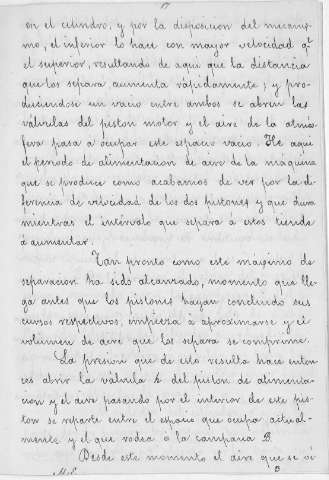 17
en el cilindro, y por la disposicion del mecanis-
mo, el inferior lo hace con mayor velocidad qᵉ
el superior, resultando de aqui que la distancia
que los separa aumenta rápidamente; y pro-
duciendose un vacio entre ambos se abren las
válvulas del piston motor y el aire de la atmós-
fera pasa a ocupar este espacio vacio. He aqui
el periodo de alimentacion de aire de la maquina
que se produce como acabamos de ver por la di-
ferencia de velocidad de los dos pistones y que dura
mientras el intérvalo que separa á estos tiende
á aumentar.
Tan pronto como este máximo de
separacion ha sido alcanzado, momento que lle-
ga antes que los pistones hayan concluido sus
cursos respectivos, empieza á aproximarse y el
volumen de aire que los separa se comprime.
La presion que de esto resulta hace enton-
ces abrir la válvula del piston de alimenta-
cion y el aire pasando por el interior de este pis-
ton se reparte entre el espacio que ocupa actual-
mente y el que rodea á la campana B.
Desde este momento el aire que se vé